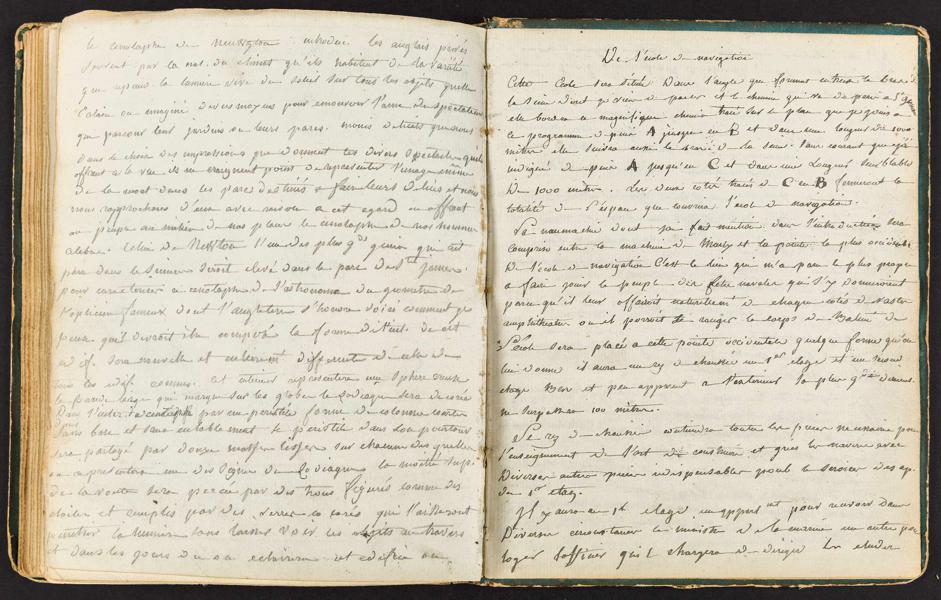 le cenotaphe de Newgton introduit les anglais privés
souvent par la nat. du climat qu'ils habitent de la rareté
que repand la lumiere vive du soleil sur tous les objets quelle
Eclaire ou imaginé divers moyens pour emouvoir l'ame du spectateur
que parcour leur jardins ou leurs parcs.
dans le choix des impressions que donnent les divers spectacles quils
offrent a la vue ils ne craignent point de representer l'image même
de la mort dans les parcs destinés a faire leurs delices et nous
nous rapprochons d'eux avec raison a cet egard en offrant
au peuple au milieu de nos places le cenotaphe de nos hommes
celebres. Celui de Newton l'un des plus gds genies qui ait
paru dans le monde seroit elevé dans le parc de St james.
pour caracteriser ce cenotaphe de l'astronome du geometre de
l'opticien fameux dont l'angleterre s'honore voici comment je
pense qu'il devroit être composé la forme
edif. sera nouvelle et entierement differente de celle de
tous les edif. connus. et interieur representera une sphere creuse
la bande large qui marque sur les globes le Zodiaque sera decorée
Dans l'interr du cenotaphe par un peristile formé de colonnes
Sans base et sans entablement le peristile dans son pourtour
sera partagé par douze masses lisses sur chacune des quelles
on representera un des signes du Zodiaque la moitié sup.
de la voute sera percée par des trous figurés comme des
etoiles et remplis par des verres colorés qui laisseront
penetrer la lumiere sans laisser voir les objets au travers
et dans les jours
De l'école de navigation
Cette Ecole sera située Dans l'angle que forment entreux le bras de
la Seine dont je viens de parler et le chemin qui va de paris a St
elle bordera ce magnifique chemin tracé sur le plan que je joins a
le programme du point A jusques en B et dans une longueur de 1000
mètres elle suivra aussi le bras de la seine. dans
indiqué du point A jusqu'en C et dans une longueur semblable
De 1000 mètres. Les deux cotés tracés de C en B fermeront la
totalité de l'espace que couvrira l'ecole de navigation.
La naumachie dont j'ai fait mention dans l'introduction sera
comprise entre la machine de Marly et la pointe la plus occidentale
De l'ecole de navigation C'est le lieu qui m'a paru le plus propre
a faire pour le peuple des fêtes navales qui s'y donneroient
parce qu'il leur offriroit naturellement de chaque cotés de vastes
amphitheatres ou il pourroit se ranger le corps de Batiment de
l'Ecole sera placé a cette pointe occidentale quelque forme qu'on
lui donne il aura un rez de chaussée un 1er etage et un second
etage Bas et peu apparent a l'exterieur sa plus gde dimens.
ne surpassera 100 mètres.
Le rez de chaussée contiendra toutes les pieces necessaires pour
l'enseignement de l'art de construire et gréer les navires avec
Diverses autres pieces indispensables pour le service des ap.
du 1er etage.
Il y aura au 1er etage un appart nt pour recevoir dans
Diverses circonstances le ministre de la marine un autre pour
loger l'officier qu'il chargera de diriger les etudes